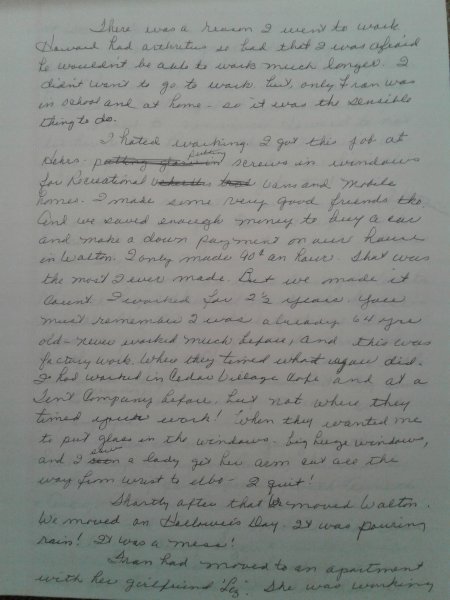 There was a reason I went to work
Howard had arthritus so bad that I was afraid
he wouldn't be able to work much longer. I
didn't want to go to work but, only Fran was
in school and at home - so it was the sensible
thing to do.
I hated working. I got this job at
putting screws in windows
for Recreational vans and Mobile
homes. I make some very good friends tho.
And we saved enough money to buy a car
and make a down payment on our house
in Walton. I only made 90¢ an hour. That was
the most I ever made. But we made it
count. I worked for 2½ years. You
must remember I was already 64 yrs
old - never worked much before, and this was
factory work. Where they timed what you did.
I had worked in Cedar Village Cafe and at a
Tent Company before, but not where they
timed your work! When they wanted me
to put glass in the windows - big huge windows,
and I saw a lady get her arm cut all the
way from wrist to elbo - I quit!
Shortly after that we moved Walton.
We moved on Hallowee's Day. It was pouring
rain! It was a mess!
Fran had moved to an apartment
with her girlfriend "Liz". She was working